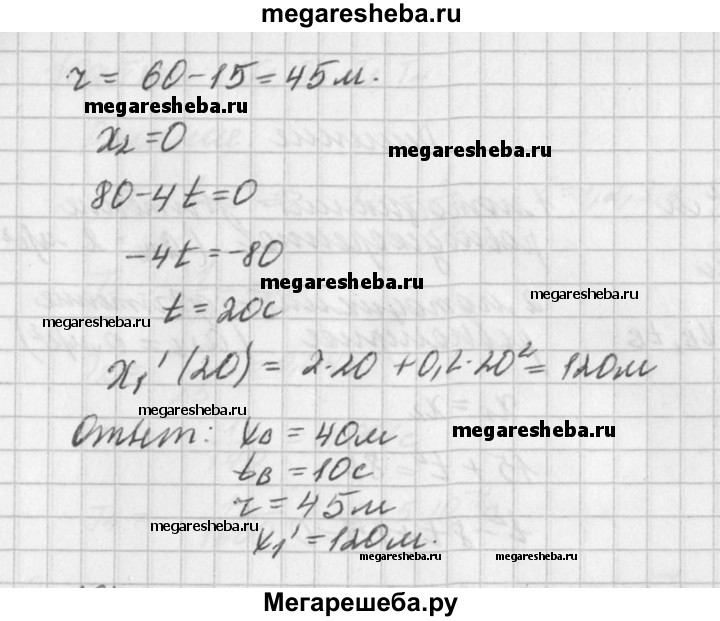 megaresheba.ru
r = 60-15 = 45м.
megaresheba.ru
x₂ = 0
megaresheba.ru
80-4t=0
-4t=-80
megaresheba.ru
megaresheba.ru
t = 20с
megaresheba.ru
x₁'(20) = 2·20 + 0,2·20² = 120м
megaresheba.ru
Ответ: x₀ = 40м
megaresheba.ru
tв = 10с
r = 45м
megaresheba.ru
x₁' = 120м.
megaresheba.ru
megaresheba.ru
Мегарешеба.ру